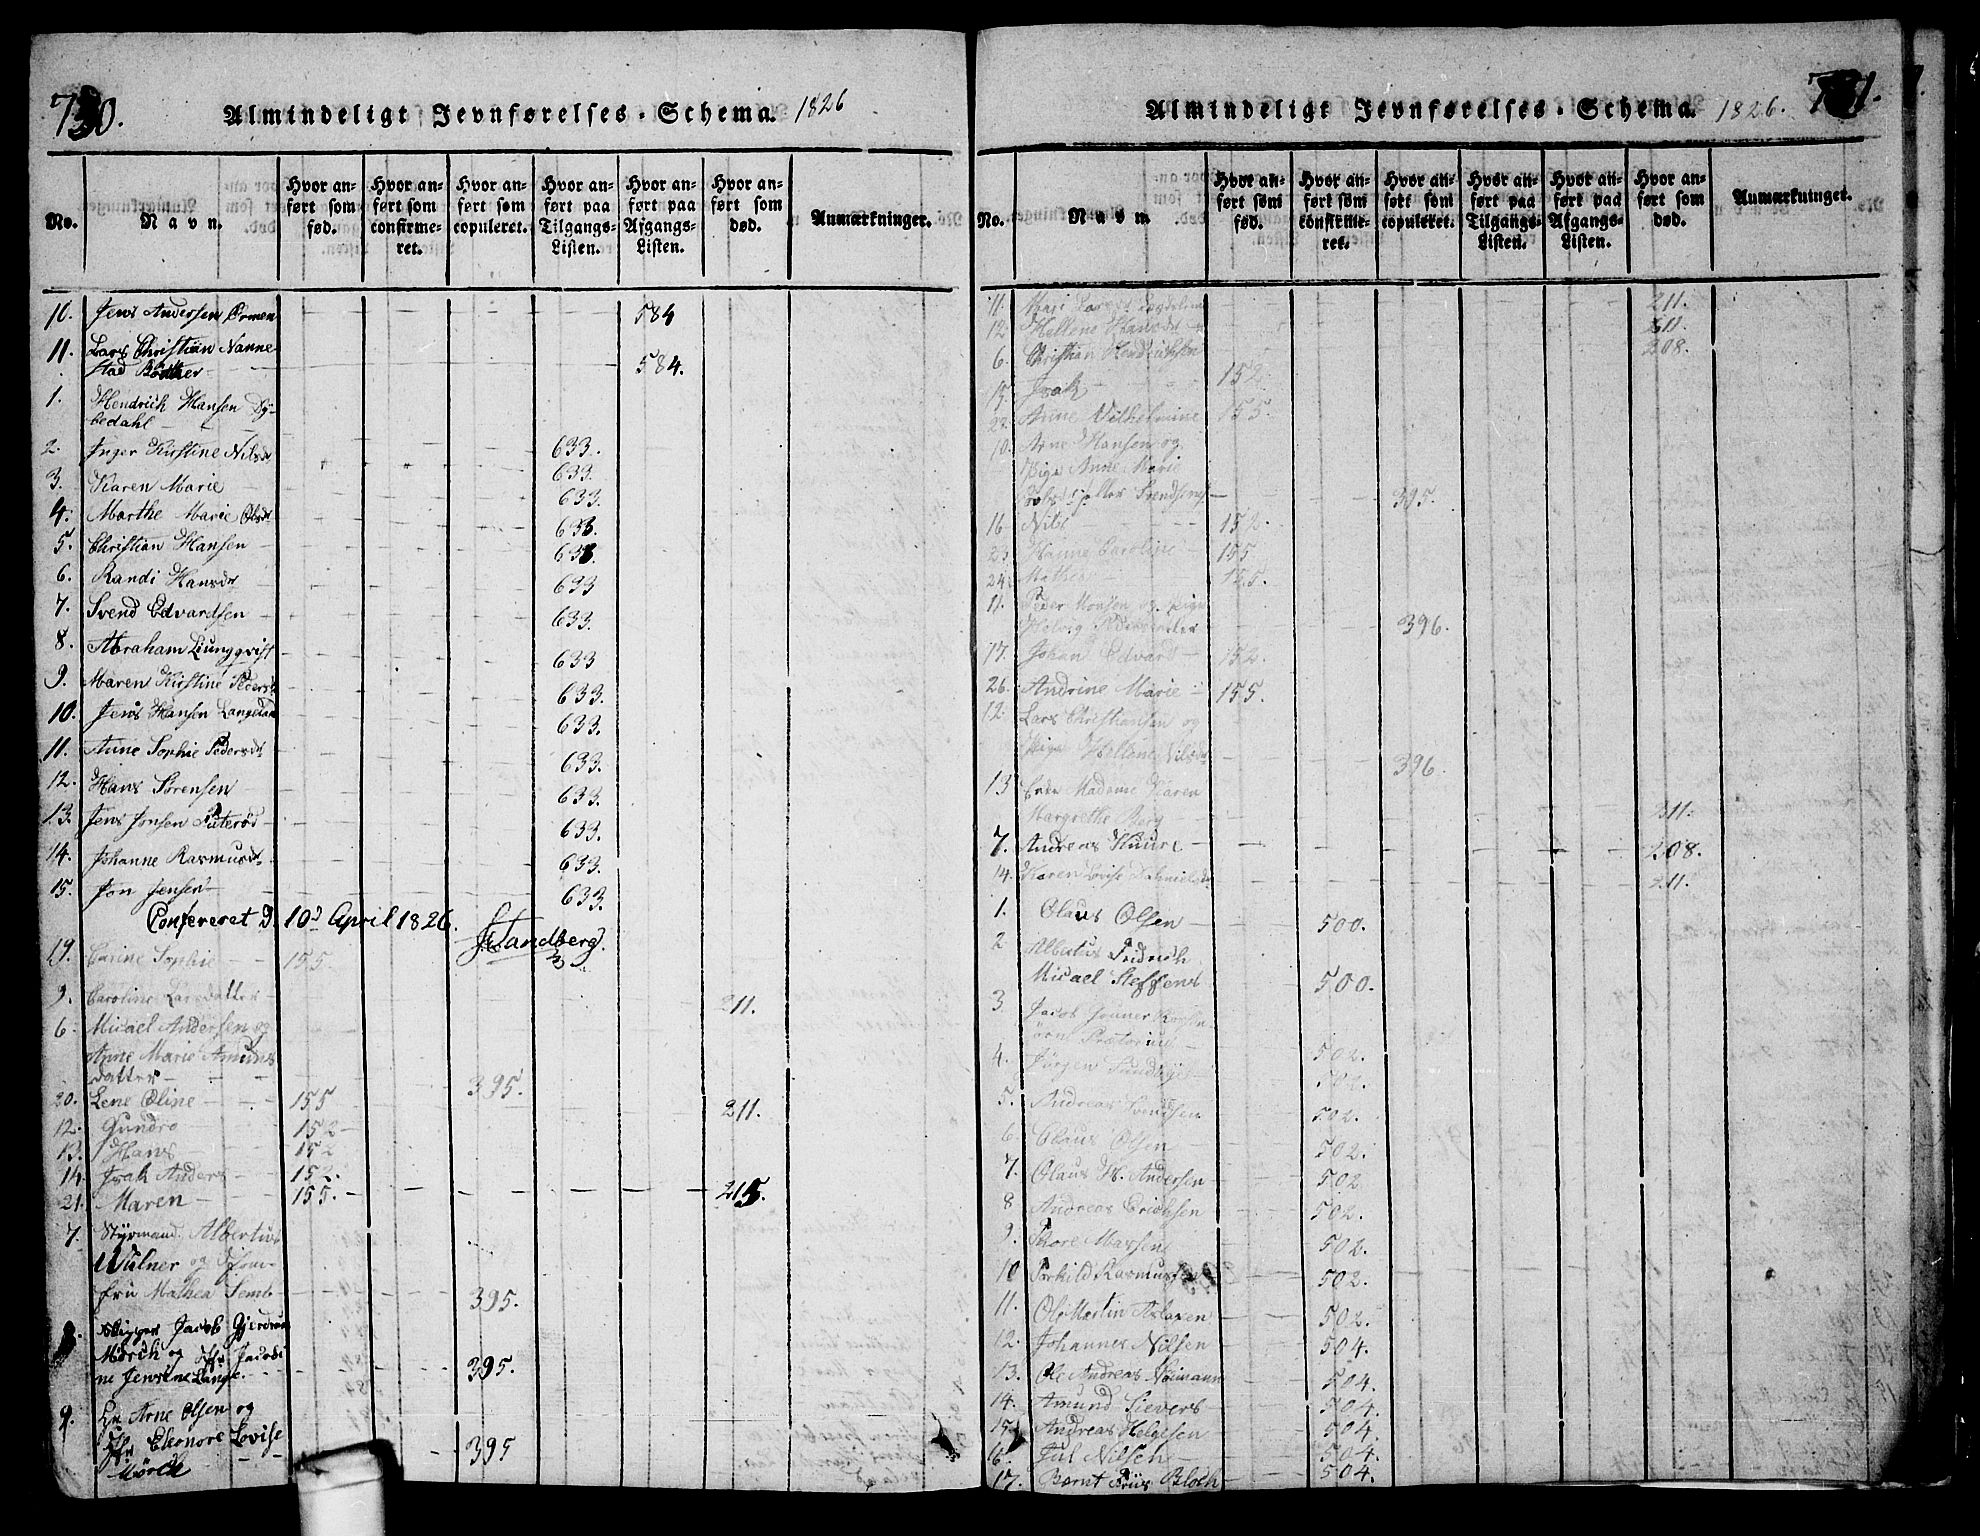 730.
Almindeligt Jevnførelses-Schema. 1826
No. Navn. Hvor anført som fød. Hvor anført som confirmeret. Hvor anført som copuleret. Hvor anført paa Tilgangs-Listen. Hvor anført paa Afgangs-Listen. Hvor anført som død. Anmærkninger.
10. Jens Andersen 584
11. Lars Christian Nanne-
stad 584.
1. Hendrich Hansen Dy-
bedahl 633.
2. Inger Kirstine Nilsdr 633.
3. Karen Marie 633.
4. Marthe Marie Olsdr 633.
5. Christian Hansen 633.
6. Randi Hansdr 633
7. Svend Edvardsen 633.
8. Abraham Liungqvist 633
9. Maren Kirstine Peders 633.
10. Jens Hansen Langedan 633.
11. Anne Sophie Pedersdr 633.
12. Hans Sørensen 633.
13. Jens Jonsen Puterød 633.
14. Johanne Rasmusdr 633.
15. Jon Jensen 633.
Confereret D. 10d April 1826. Sandberg.
19. Carine Sophie 155
9. Caroline Larsdatter 211.
6. Micael Andersen og
Anne Marie Amunds
datter 395.
20. Lene Oline 155 211.
12. Gundro 152
13. Hans 152
14. Isak Anders 152.
21. Maren 155. 215.
7. Styrmand Albertus
Wulner og Jom-
fru Mathea Semb 395.
8. Skipper Jacob Gjerdrum
Mørch og Jfr Jacobi
ne Jensine Lange. 395.
9. Hr Arne Olsen og
Jfr Eleonore Lovise
Mørch 395
Almindeligt Jevnførelses-Schema. 1826. 731.
No. Navn Hvor anført som fød. Hvor anført som confirmeret. Hvor anført som copuleret. Hvor anført paa Tilgangs-Listen. Hvor anført paa Afgangs-Listen. Hvor anført som død. Anmærkninger.
11. Mari 211.
12. Hellene Hansdr 211.
6. Christian Hendrichsen 208.
15. Isak 152
22. Anne Vilhelmine 155.
10. Arne Hansen og
Pige Anne Marie
eller Svendsens 395.
16. Nils 152.
23. Hanne Caroline 155
24. Mathea 155.
11. Peder Monsen og Pige
Pedersdatter 396.
17. Johan Edvart 152.
26. Andrine Marie 155.
12. Lars Christiansen og
Pige Hellene Nilsdr 396.
13 Enke Madame Karen
Margrethe Berg 211.
7. Andreas 208.
14. Karen Lovise Danielsdr 211.
1. Olaus Olsen 500.
2 Albertus Fridrich
Micael Steffens 500.
3 Jacob
ørn Prætorius 502.
4. Jørgen Sundby 502.
5. Andreas Svendsen 502.
6. Claus Olsen 502.
7. Olaus H. Andersen 502
8 Andreas Erichsen 502.
9. Thore Mansen 502.
10 Torkild Rasmus 502.
11. Ole Martin Aslaxen 502.
12. Johannes Nilsen 504.
13. Ole Andreas Neimann 504.
14. Amund Sievers 504.
15. Andreas Helgesen 504.
16. Jul Nilsen 504.
17. Bernt Friis Bloch 504.